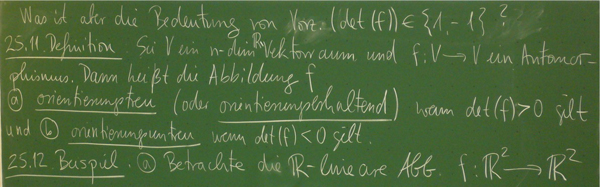 Was ist aber die Bedeutung von Vorz.(det(f)) ∈ {1,-1} ?
25.11. Definition. Sei V ein n-dim ℝ Vektorraum und f: V → V ein Automor-
phismus. Dann heißt die Abbildung f
ⓐ orientierungstreu (oder orientierungserhaltend) wenn det(f)>0 gilt
und ⓑ orientierungsuntreu wenn det(f)<0 gilt.
25.12 Beispiel. ⓐ Betrachte die ℝ-lineare Abb. f: ℝ² → ℝ²